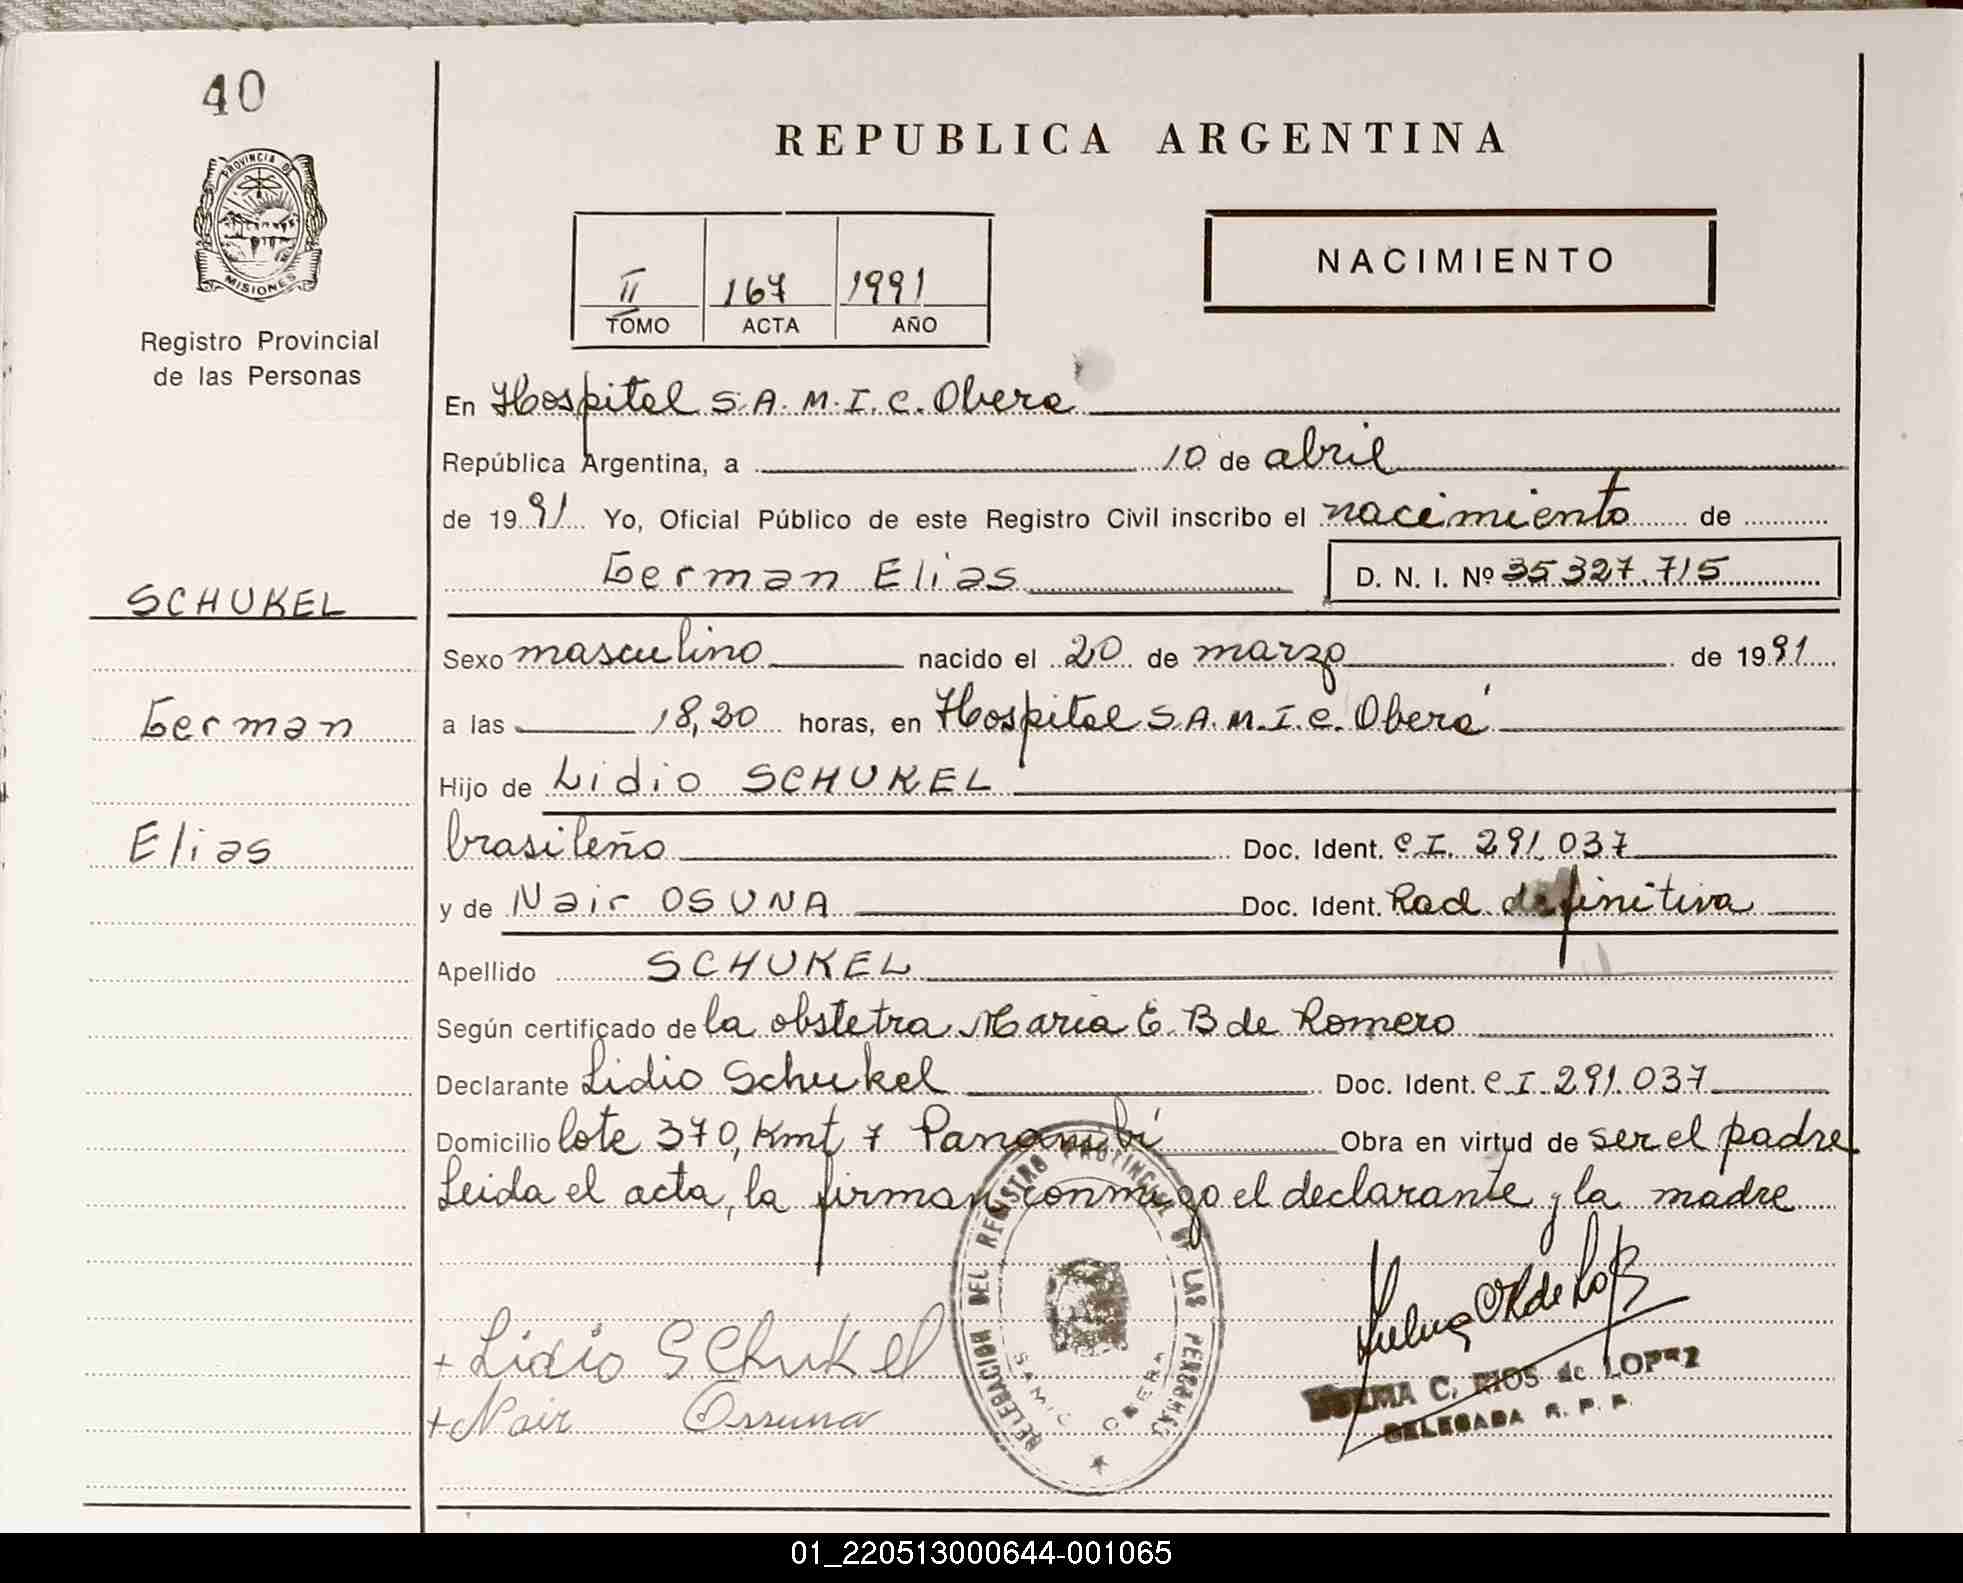 40
PROVINCIA DE
MISIONES
Registro Provincial
de las Personas
SCHUKEL
German
Elias
REPUBLICA ARGENTINA
II 167 1991
TOMO ACTA AÑO
NACIMIENTO
En Hospital S.A.M.I.C. Obera
República Argentina, a 10 de abril
de 1991 Yo, Oficial Público de este Registro Civil inscribo el nacimiento de
German Elias D. N. I. Nº 35 327.715
Sexo masculino nacido el 20 de marzo de 1991
a las 18,20 horas, en Hospital S.A.M.I.C. Oberá
Hijo de Lidio SCHUKEL
brasileño Doc. Ident. C.I. 291.037
y de Nair OSUNA Doc. Ident. Rad definitiva
Apellido SCHUKEL
Según certificado de la obstetra Maria E. B de Romero
Declarante Lidio Schukel Doc. Ident. C.I. 291.037
Domicilio lote 370, Kmt 7 Panambí Obra en virtud de ser el padre
Leida el acta, la firman conmigo el declarante y la madre
+ Lidio SChuKel
+ Nair Ossuna
DELEGACION DEL REGISTRO PROVINCIAL DE LAS PERSONAS
SAMIC OBERA
C. RIOS de LOPEZ
DELEGADA R. P. P.
01_220513000644-001065